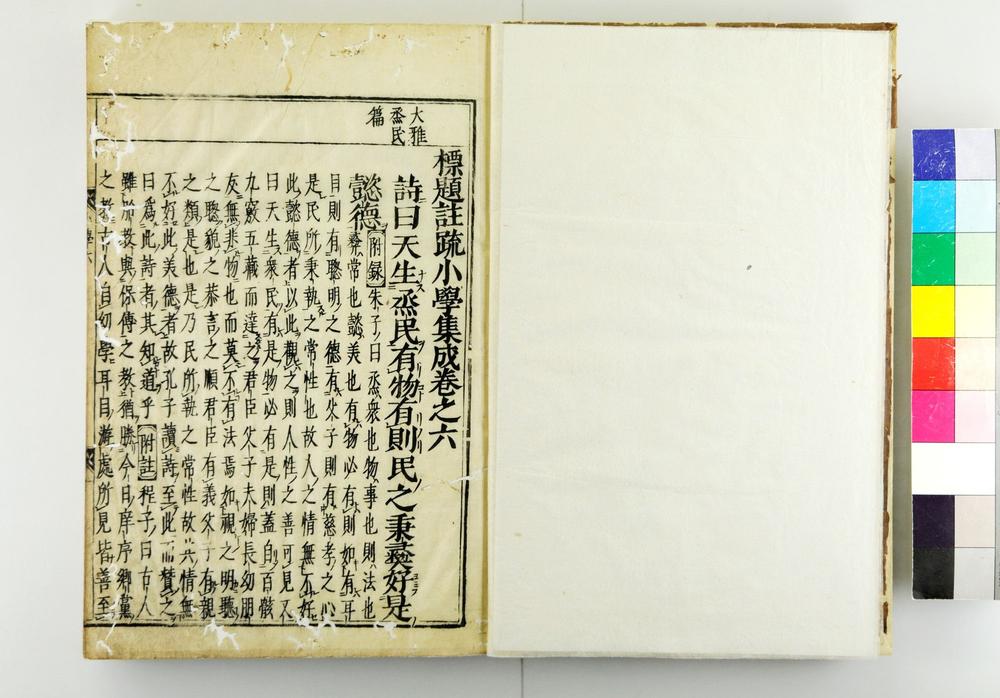 大雅
烝民
篇
標題註疏小學集成卷之六
詩曰天生烝民有物有則民之秉彝好是
懿德【附録】朱子曰烝衆也物事也則法也
彝常也懿美也有物必有則如有耳
目則有聰明之德有父子則有慈孝之心
是民所秉執之常性也故人之情無不好
此懿德者以此觀之則人性之善可見又
曰天生衆民有是物必有是則蓋自百骸
九竅五藏而達之君臣父子夫婦長幼朋
友無非物也而莫不有法焉如視之明聽
之聰貌之恭言之順君臣有義父子有親
之類是也是乃民所執之常性故其情無
不好此美德者故孔子讀詩至此而贊之
曰爲此詩者其知道乎【附註】程子曰古人
雖胎教與保傅之教猶勝今日庠序鄉黨
之教古人自幼學耳目游處所見皆善至